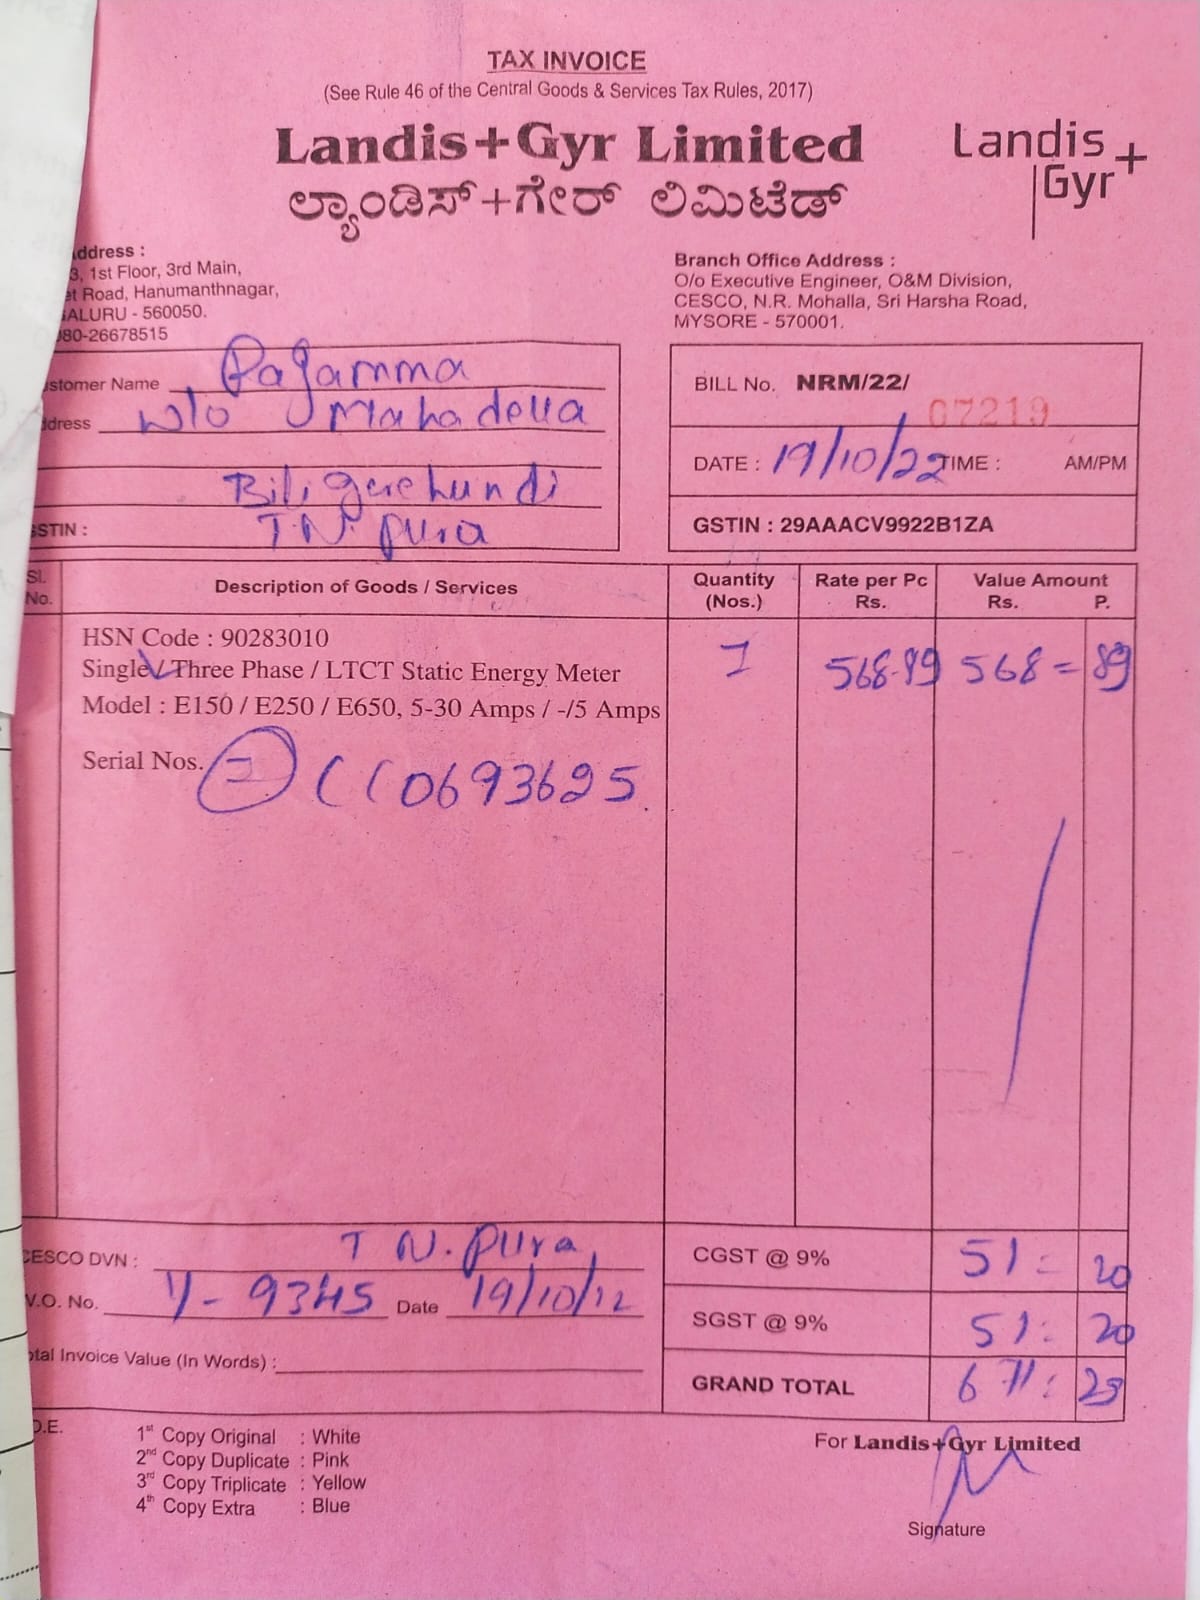 TAX INVOICE
(See Rule 46 of the Central Goods & Services Tax Rules, 2017)
Landis+Gyr Limited
ಲ್ಯಾಂಡಿಸ್+ಗೇರ್ ಲಿಮಿಟೆಡ್
Landis
Gyr+
ddress :
3, 1st Floor, 3rd Main,
et Road, Hanumanthnagar,
ALURU - 560050.
080-26678515
Branch Office Address :
O/o Executive Engineer, O&M Division,
CESCO, N.R. Mohalla, Sri Harsha Road,
MYSORE - 570001.
ustomer Name
ddress W/o Mahadeva
T.N. pura
STIN :
BILL No. NRM/22/ 07219
DATE : 19/10/22 TIME : AM/PM
GSTIN : 29AAACV9922B1ZA
Sl. No. Description of Goods / Services Quantity (Nos.) Rate per Pc Rs. Value Amount Rs. P.
HSN Code : 90283010
Single / Three Phase / LTCT Static Energy Meter 1 568.89 568 = 89
Model : E150 / E250 / E650, 5-30 Amps / -/5 Amps
Serial Nos. 0693625
CESCO DVN : T N. pura
V.O. No. 9345 Date 19/10/22
otal Invoice Value (In Words) :
CGST @ 9% 51 = 20
SGST @ 9% 51 : 20
GRAND TOTAL 671 : 29
O.E.
1st Copy Original : White
2nd Copy Duplicate : Pink
3rd Copy Triplicate : Yellow
4th Copy Extra : Blue
For Landis+Gyr Limited
Signature